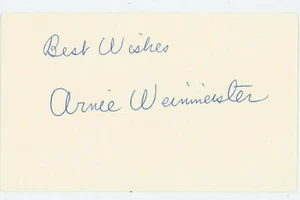 Best Wishes
Arnie Weinmeister